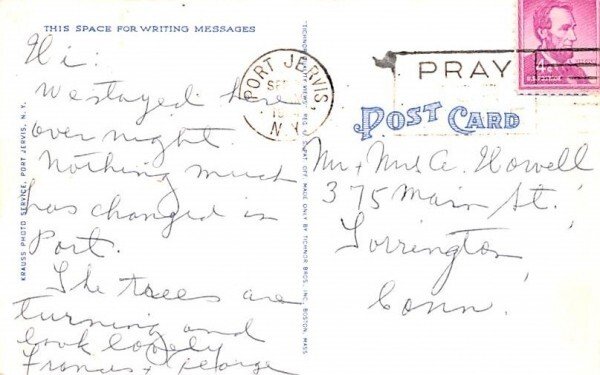 THIS SPACE FOR WRITING MESSAGES
Hi:
We stayed here
over night.
Nothing much
has changed in
Port.
The trees are
turning and
look lovely
Frances + George
KRAUSS PHOTO SERVICE, PORT JERVIS, N. Y.
MADE ONLY BY TICHNOR BROS., INC., BOSTON, MASS.
PORT JERVIS,
SE
19
N.Y.
PRAY
POST CARD
Mr + Mrs A. Howell
375 Main St.
Torrington
Conn.